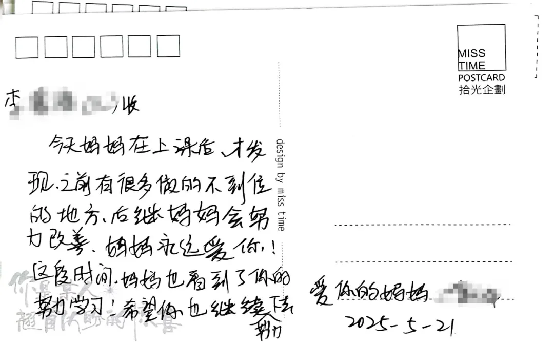 MISS
TIME
POSTCARD
拾光企劃
李 收
今天妈妈在上课后、才发
现、之前有很多做的不到位
的地方、后继妈妈会努
力改善、妈妈永远爱你!
这段时间、妈妈也看到了你的
努力学习!希望你也继续努力下去
design by miss time
爱你的妈妈
2025-5-21